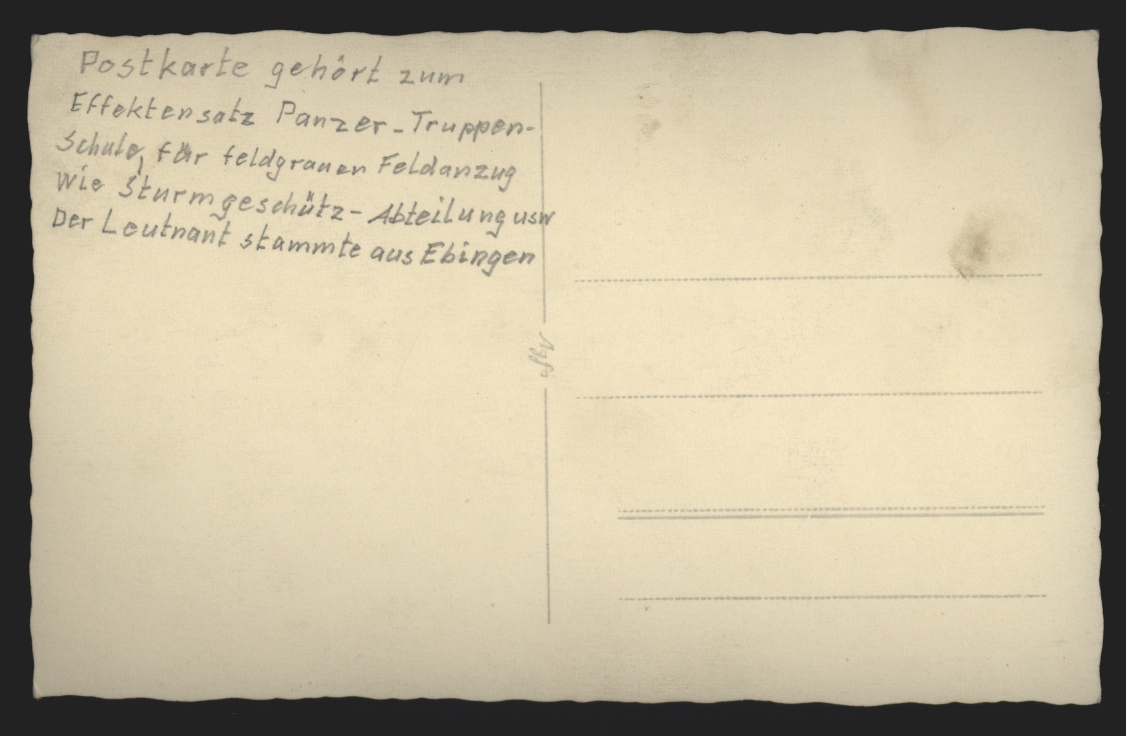 Postkarte gehört zum
Effektensatz Panzer-Truppen-
Schule, für feldgrauen Feldanzug
Wie Sturmgeschütz-Abteilung usw
Der Leutnant stammte aus Ebingen